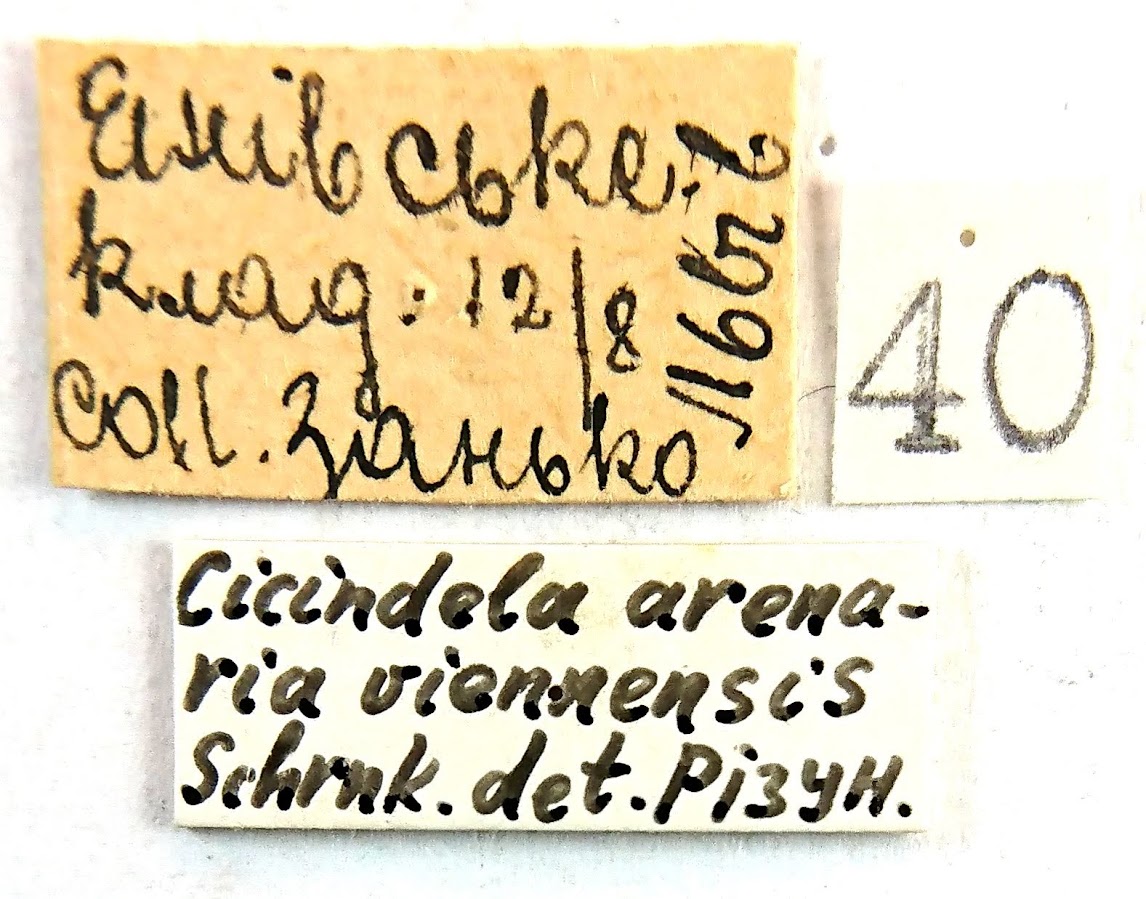 Янівське
клад. 12/8
coll. Занько
40
Cicindela arena-
ria viennensis
Schrnk. det. Різун.